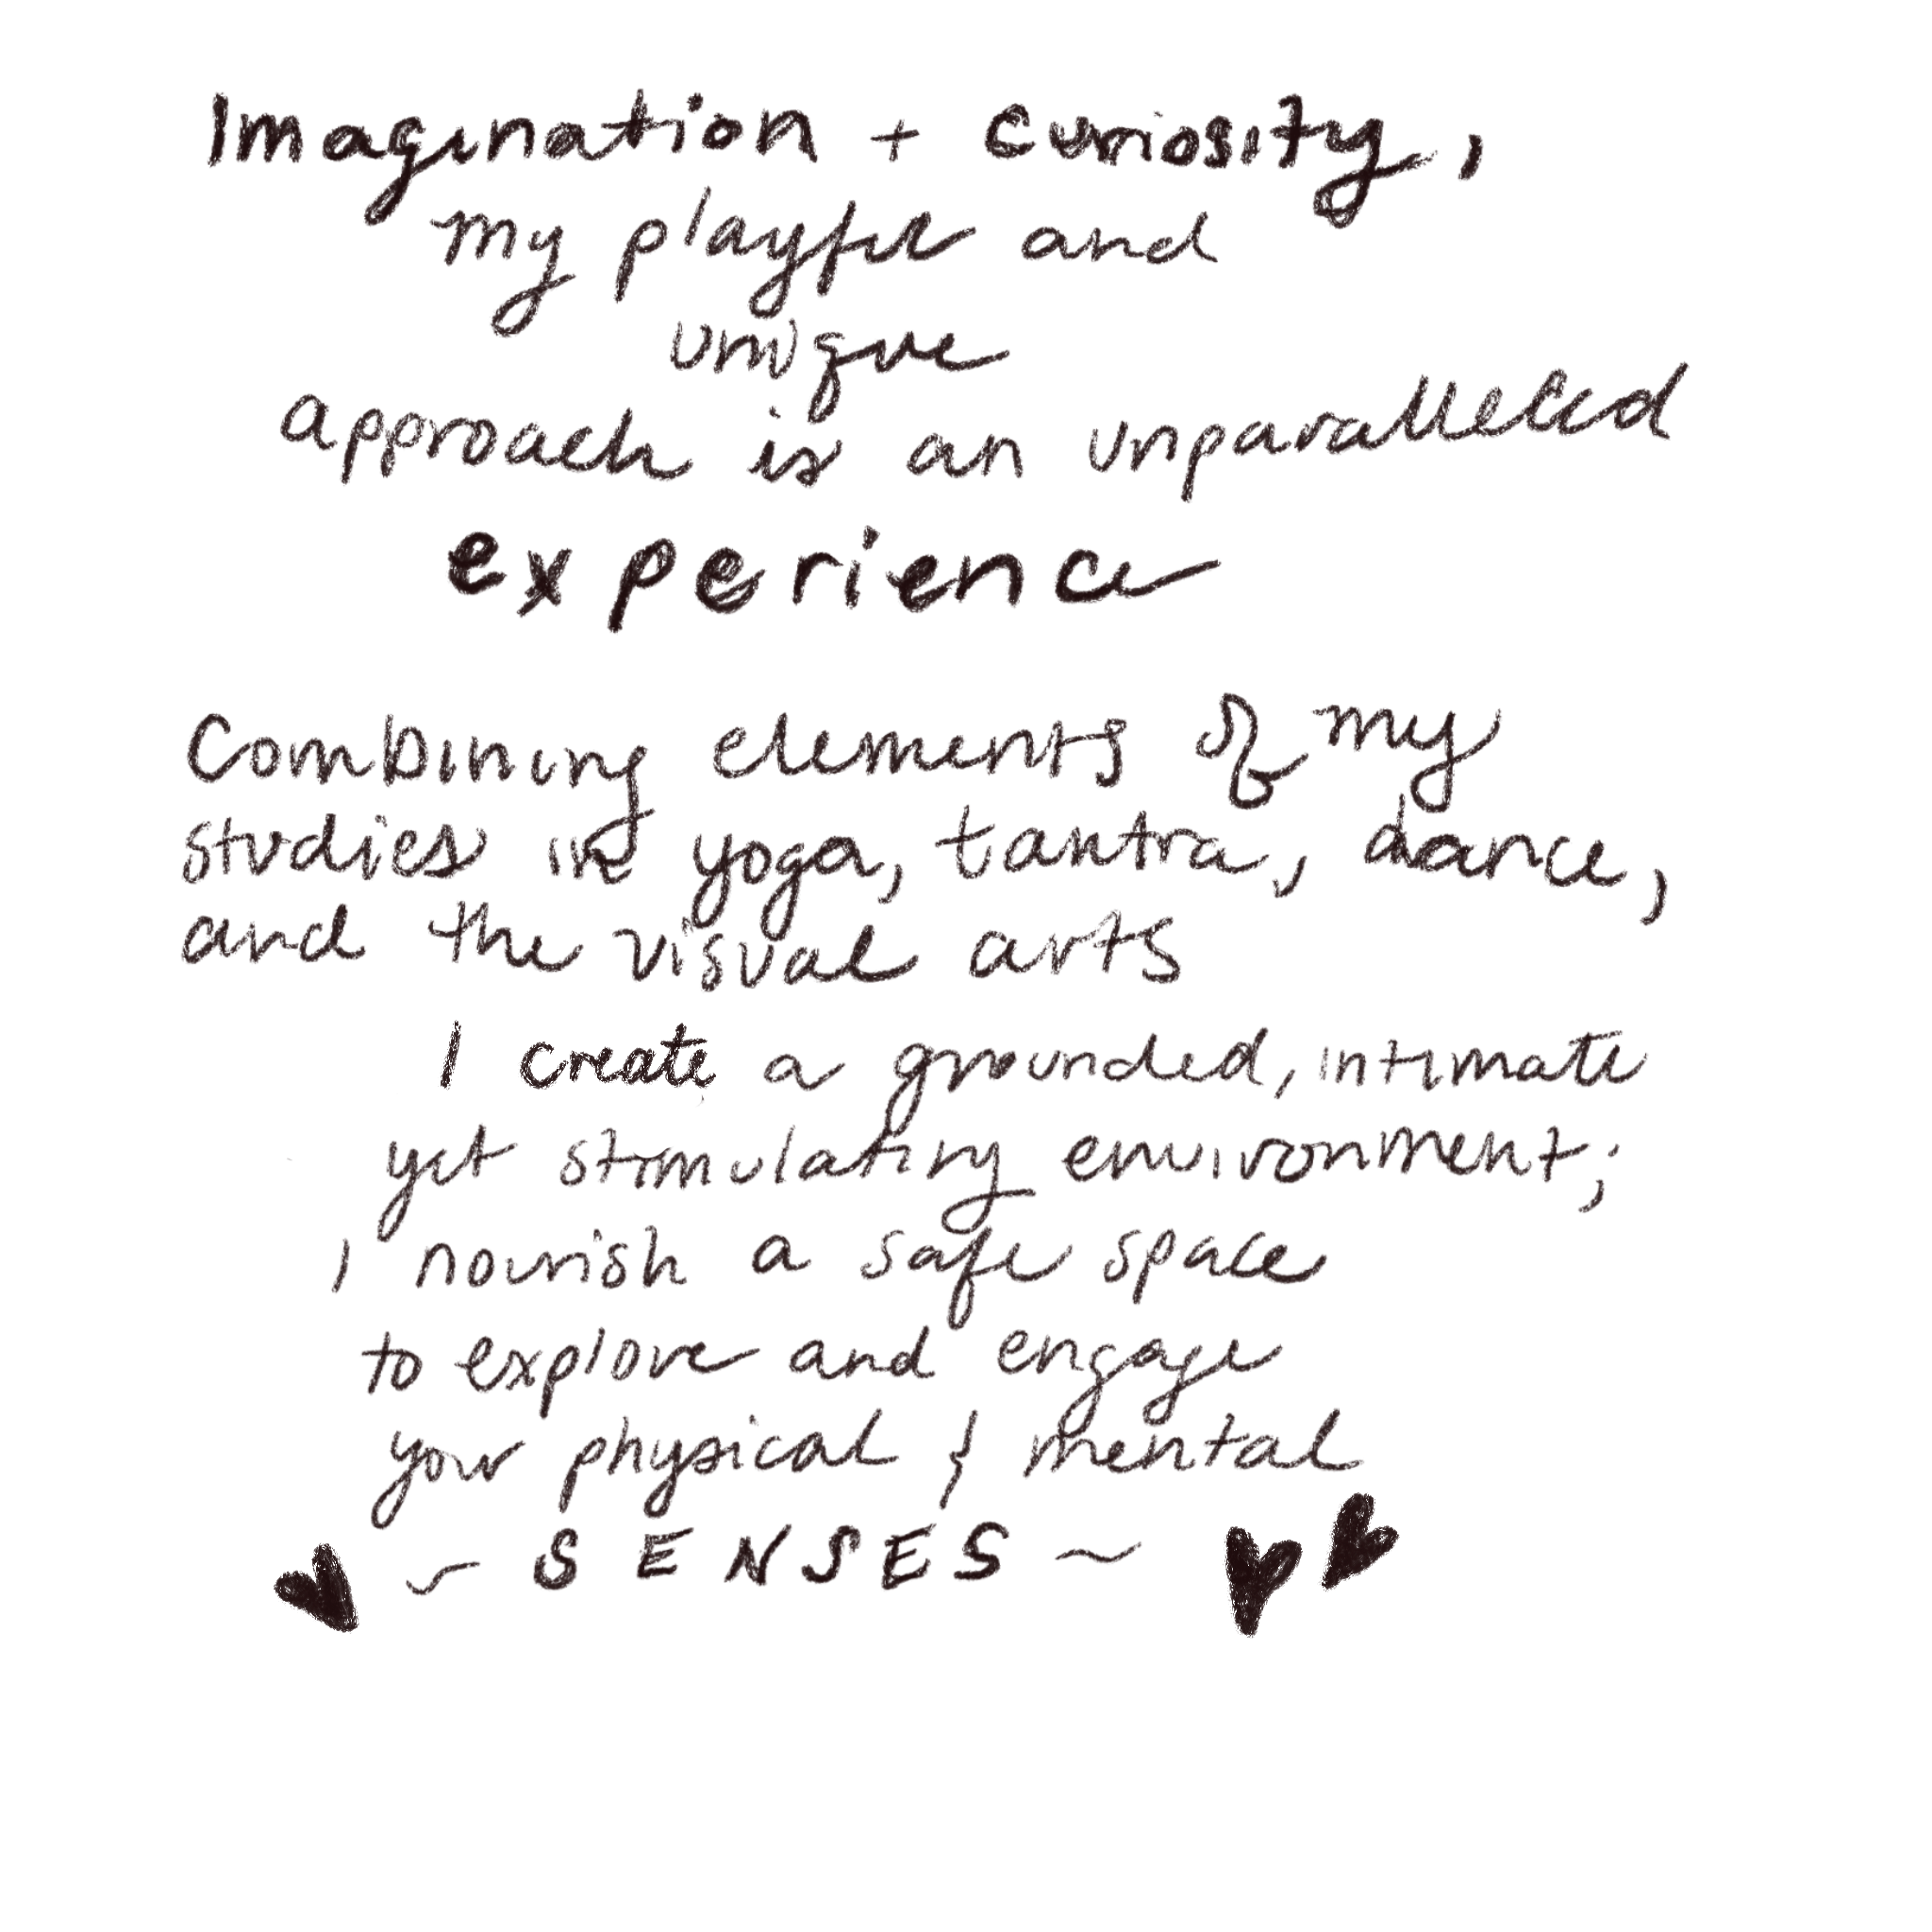 Imagination + curiosity,
my playful and
unique
approach is an unparalleled
experience
Combining elements of my
studies in yoga, tantra, dance,
and the visual arts
I create a grounded, intimate
yet stimulating environment;
I nourish a safe space
to explore and engage
your physical & mental
~ SENSES ~